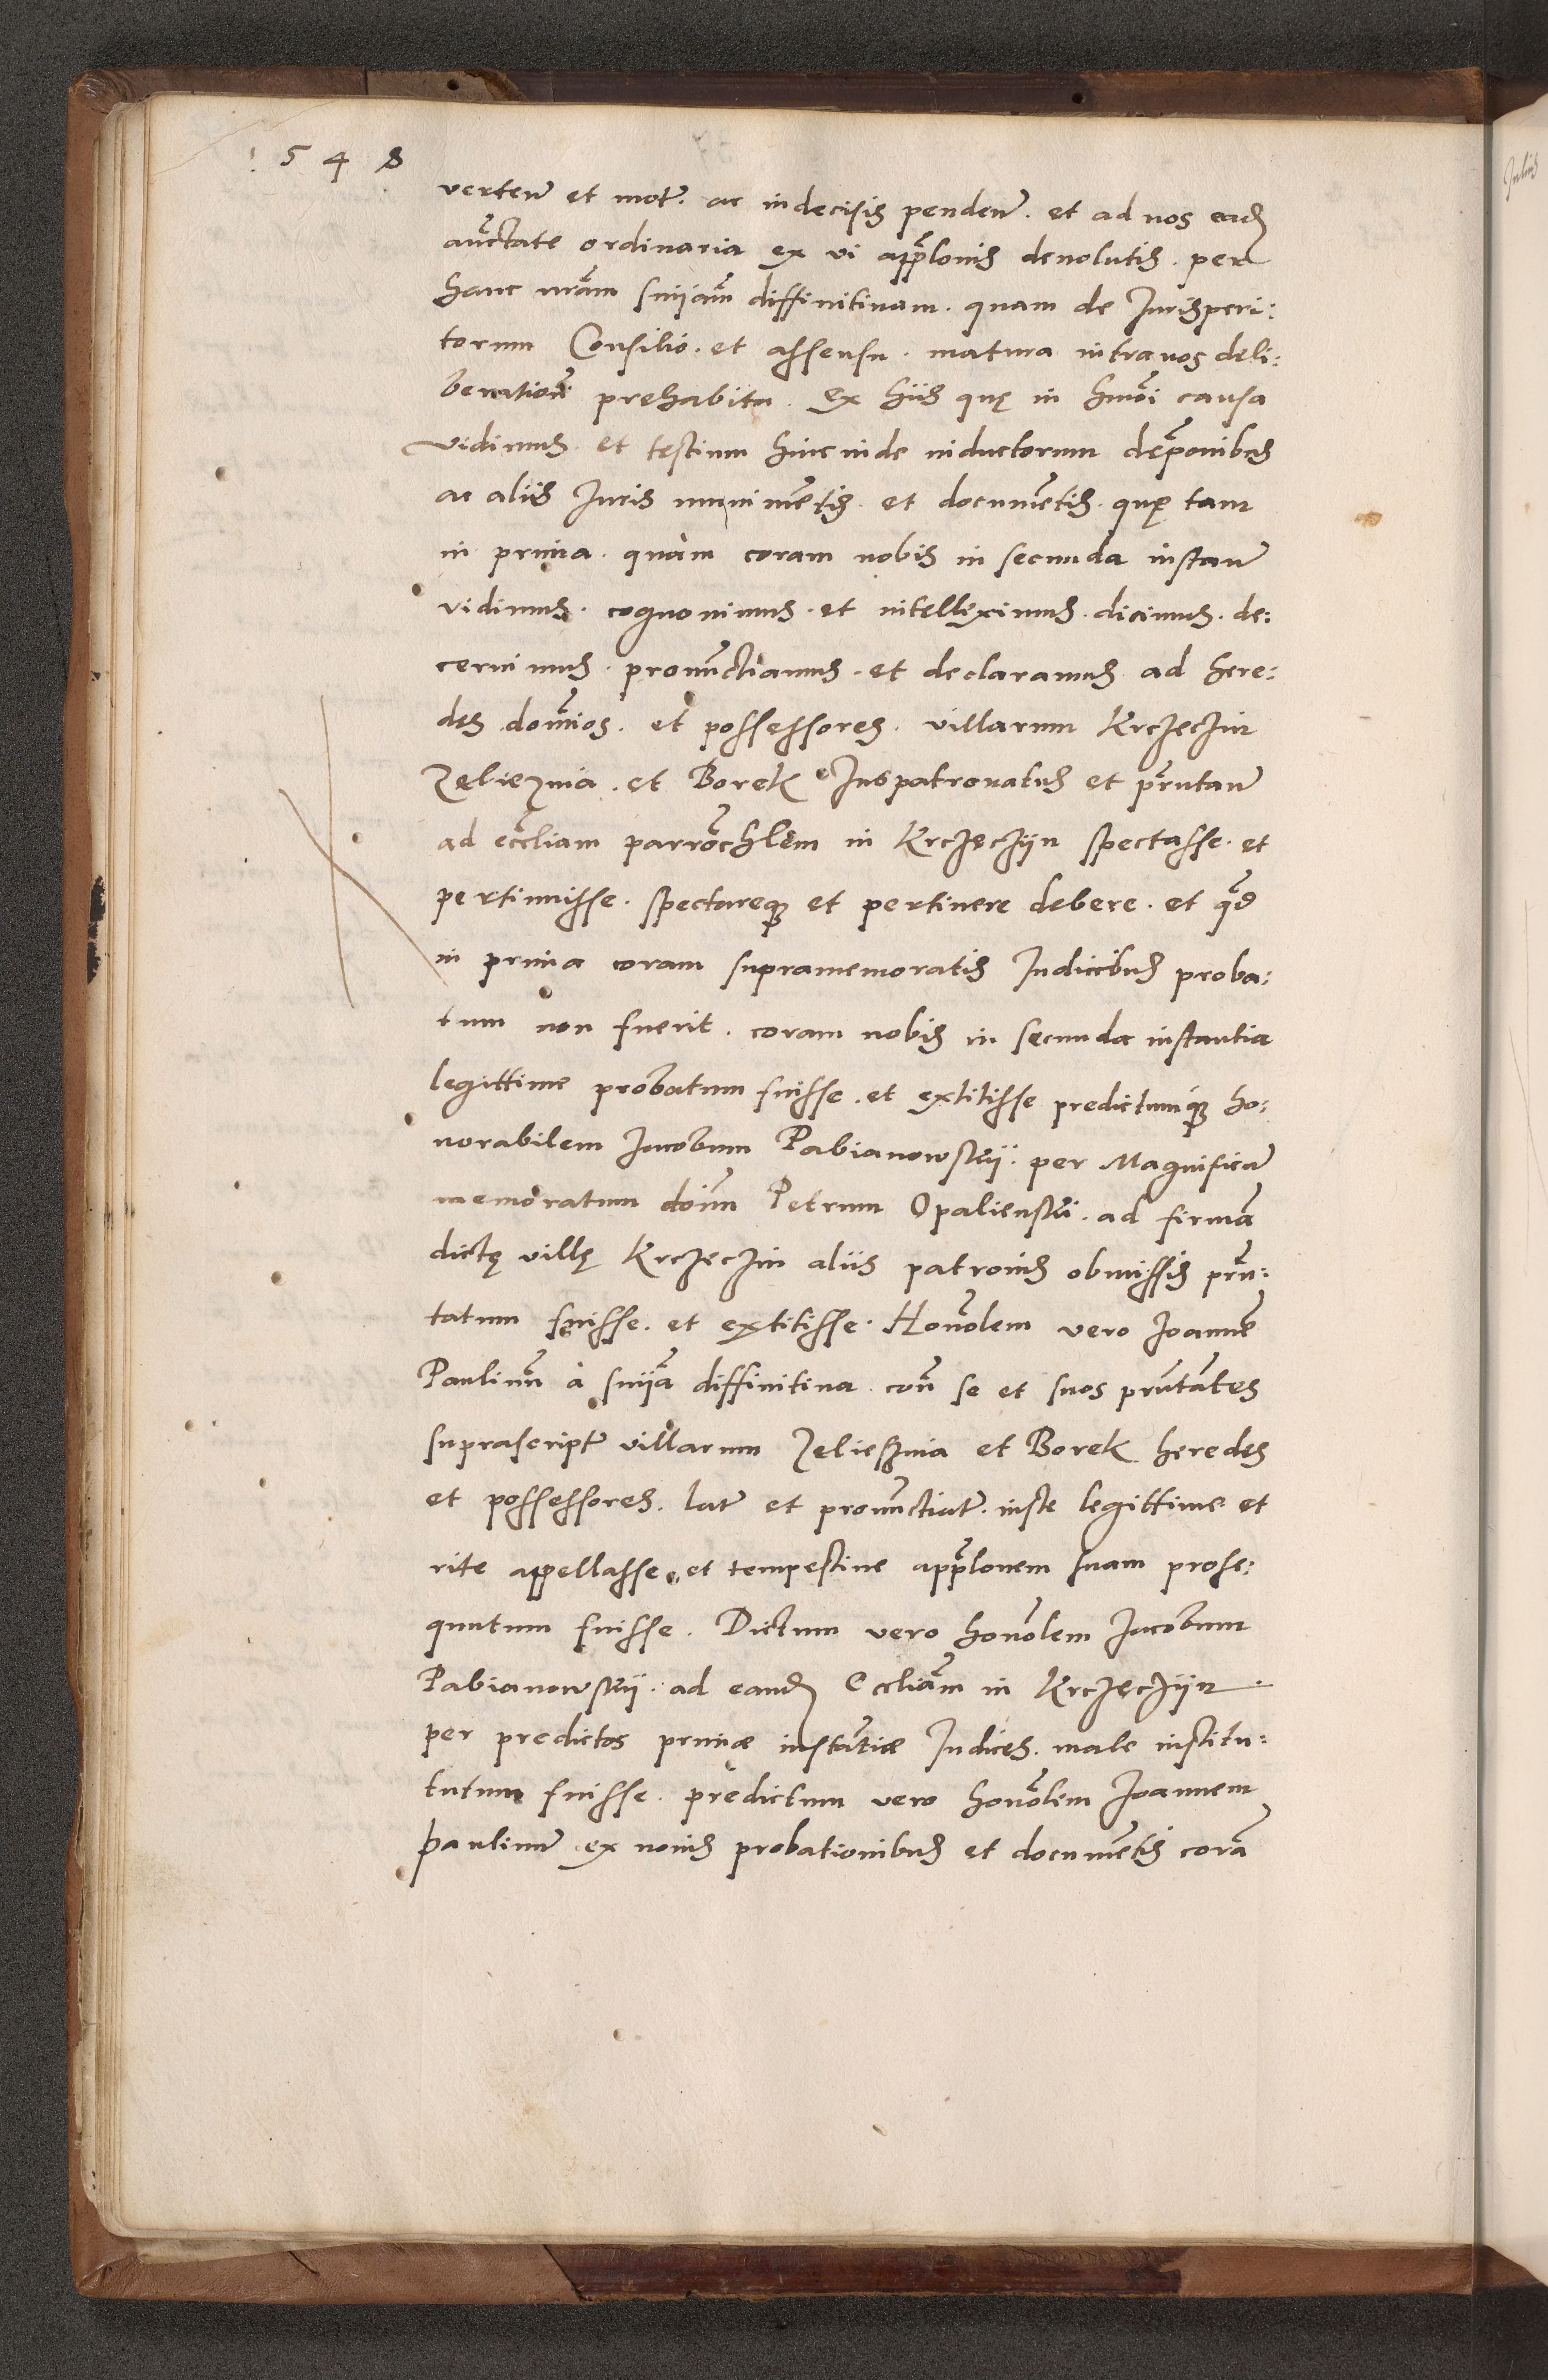 1 5 4 8
verten̄ et mot̄. ac indecisis penden̄. et ad nos eadē
auctāte ordinaria ex vi app̄lonis deuolutis. per
hanc nrām snīam diffinitiuam. quam de Jurisperi:
torum Consilio. et assensu. matura intra nos deli:
beratione prehabita. Ex hiis quę in hmōi causa
vidimus. et testium hincinde inductorum dep̄onibus
ac aliis Juris munimētis. et documētis. quę tam
in prima. quàm coram nobis in secunda instan̄
vidimus. cognouimus. et intelleximus. dicimus. de:
cernimus. pronūctiamus. et declaramus ad here:
des domīos. et possessores. villarum Krczeczin
Zelieznia. et Borek Juspatronatus et prn̄tan̄
ad eccl̄iam parroc̄hlem in Krczęcziin spectasse. et
pertinuisse. spectareq; et pertinere debere. et qd̄
in prima coram supramemoratis Judicibus proba:
tum non fuerit. coram nobis in secunda instantia
legittime probatum fuisse. et extitisse predictumq; ho:
norabilem Jacobum Pabianowskii. per Magnificū
memoratum doīm Petrum Opalienski. ad firmā
dictę villę Krczeczin aliis patronis obmissis prn̄:
tatum fuisse. et extitisse. Honōlem vero Joannē
Paulinū à snīa diffinitiua. con̄ se et suos prn̄tantes
suprascript̄ villarum Zeliesznia et Borek heredes
et possessores. lat̄ et pronūctiat̄. iuste legittime et
rite appellasse. et tempestiue app̄lonem suam prose:
quutum fuisse. Dictum vero honōlem Jacobum
Pabianowskii. ad eandē Eccliām in Krczęcziin
per predictos primæ instātiæ Judices. male institu:
tutum fuisse. predictum vero honōlem Joannem
paulinū ex nouis probationibus et documētis corā